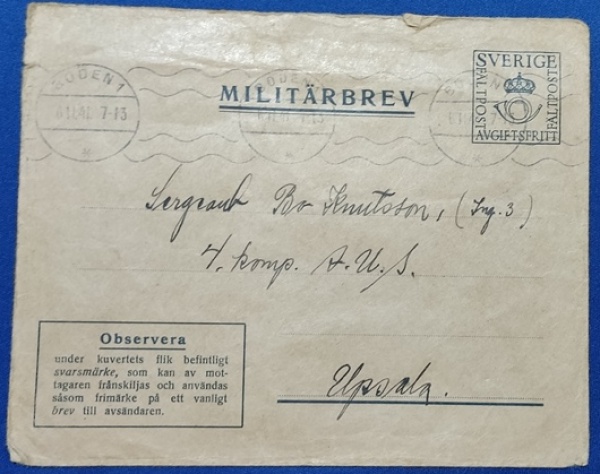 SVERIGE
FÄLTPOST
FÄLTPOST
AVGIFTSFRITT
BODEN 1
7-13
BODEN 1
MILITÄRBREV
Sergeant Bo Knutsson, (Ing. 3)
4. komp. A.U.S.
Upsala.
Observera
under kuvertets flik befintligt
svarsmärke, som kan av mot-
tagaren frånskiljas och användas
såsom frimärke på ett vanligt
brev till avsändaren.